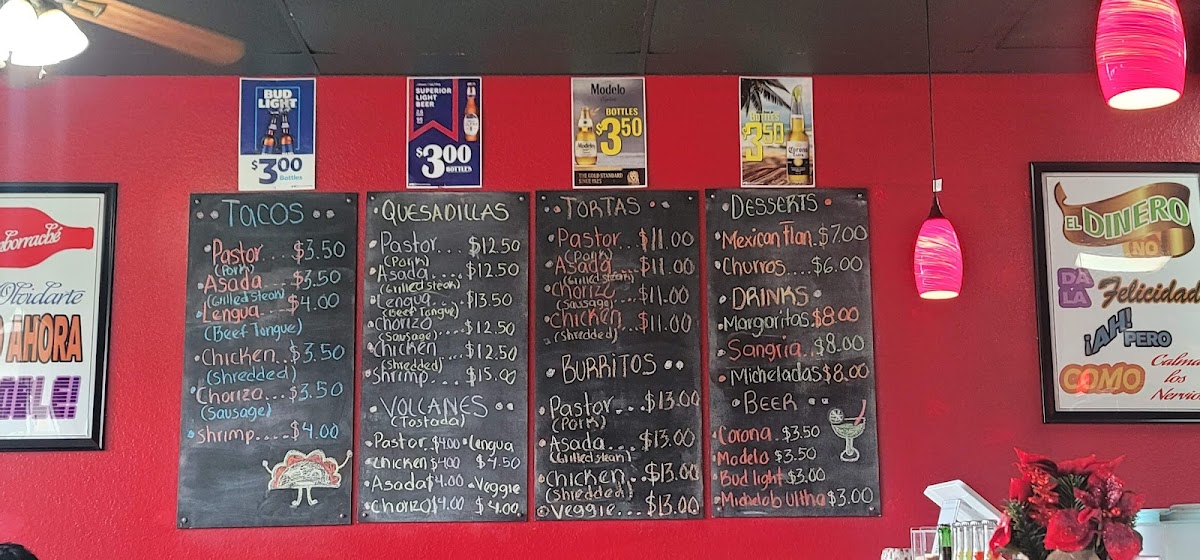 BUD
LIGHT
$3.00
Bottles
SUPERIOR
LIGHT
BEER
$3.00
BOTTLES
Modelo
BOTTLES
$3.50
THE GOLD STANDARD
SINCE 1925
BOTTLES
$3.50
Corona
TACOS
Pastor... $3.50
(Pork)
Asada... $3.50
(Grilled Steak)
Lengua... $4.00
(Beef Tongue)
Chicken.. $3.50
(Shredded)
Chorizo.. $3.50
(Sausage)
Shrimp.... $4.00
QUESADILLAS
Pastor... $12.50
(Pork)
Asada.... $12.50
(Grilled Steak)
Lengua... $13.50
(Beef Tongue)
Chorizo... $12.50
(Sausage)
Chicken... $12.50
(Shredded)
Shrimp... $15.00
VOLCANES
(Tostada)
Pastor $4.00 • Lengua
Chicken $4.00 $4.50
Asada $4.00 • Veggie
Chorizo $4.00 $4.00
TORTAS
Pastor... $11.00
(Pork)
Asada... $11.00
(Grilled Steak)
Chorizo... $11.00
(Sausage)
Chicken.. $11.00
(Shredded)
BURRITOS
Pastor... $13.00
(Pork)
Asada... $13.00
(Grilled Steak)
Chicken... $13.00
(Shredded)
Veggie... $13.00
DESSERTS
Mexican Flan. $7.00
Churros.... $6.00
DRINKS
Margaritas $8.00
Sangria.. $8.00
Micheladas $8.00
BEER
Corona. $3.50
Modelo. $3.50
Bud light $3.00
Michelob Ultha $3.00
mborraché
Olvidarte
O AHORA
OBLE!
EL DINERO
NO
DA
LA Felicidad
¡AH!
PERO
COMO
Calma
los
Nervios